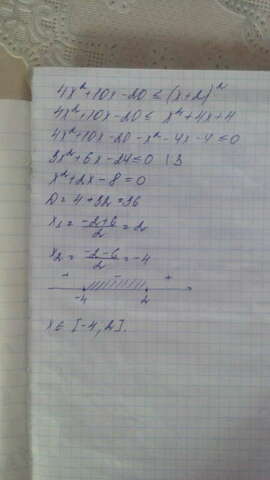 4x²+10x-20 ≤ (x+2)²
4x²+10x-20 ≤ x²+4x+4
4x²+10x-20-x²-4x-4 ≤ 0
3x²+6x-24 ≤ 0 | 3
x²+2x-8 = 0
D = 4+32 = 36
x₁ = (-2+6)/2 = 2
x₂ = (-2-6)/2 = -4
+ - +
-4 2
x ∈ [-4; 2].